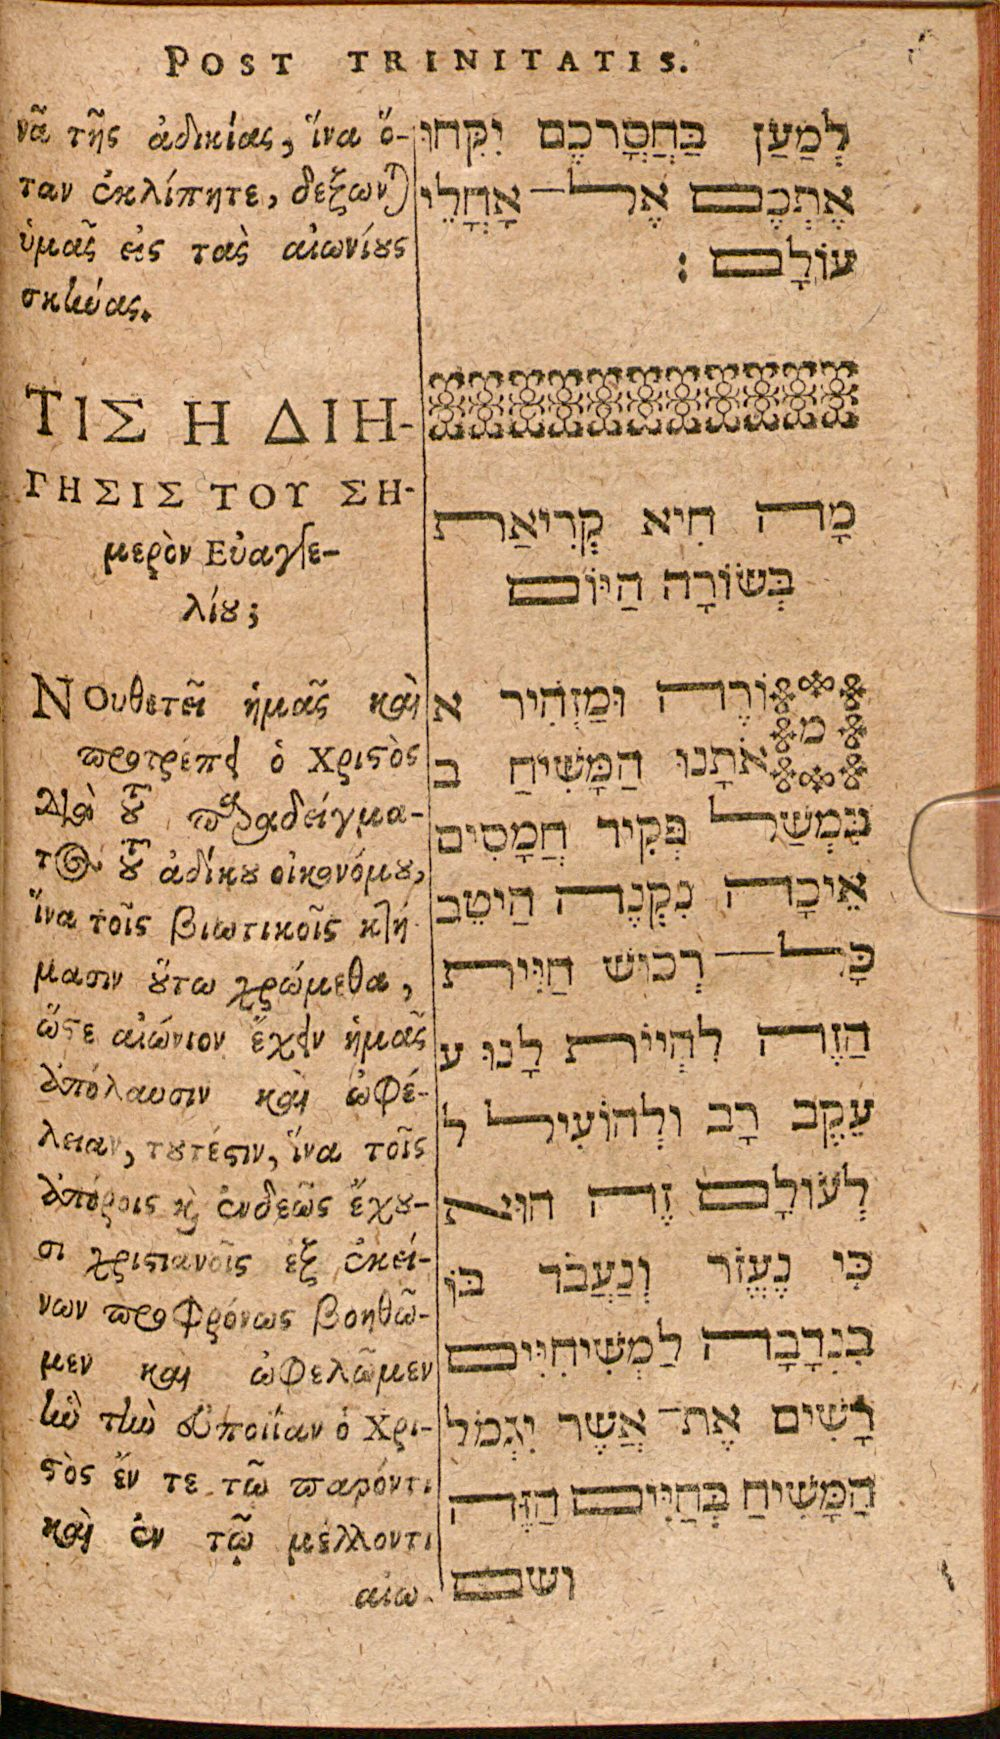 POST TRINITATIS.
νᾶ τῆς ἀδικίας, ἵνα ὅ-
ταν ἐκλίπητε, δέξων)
ὑμᾶς εἰς τὰς αἰωνίȣς
σκηνάς.
ΤΙΣ Η ΔΙΗ-
ΓΗΣΙΣ ΤΟΥ ΣΗ-
μερὸν Εὐαγγε-
λίȣ;
ΝΟυθετεῖ ἡμᾶς καὶ
προτρέπει ὁ Χριϛὸς
διὰ τȣ͂ παραδείγμα-
τος τȣ͂ ἀδίκȣ οἰκονόμȣ,
ἵνα τοῖς βιωτικοῖς κτή-
μασιν ȣ̔́τω χρώμεθα,
ὥϛε αἰώνιον ἔχειν ἡμᾶς
ἀπόλαυσιν καὶ ὠφέ-
λειαν, τȣτέϛιν, ἵνα τοῖς
ἀπόροις κὶ ἐνδεῶς ἔχȣ-
σι χριϛιανοῖς ἐξ ἐκεί-
νων προφρόνως βοηθῶ-
μεν καὶ ὠφελῶμεν
ἣν τὴν εὐποιΐαν ὁ Χρι-
ϛὸς ἔν τε τῷ παρόντι
καὶ ἐν τῷ μέλλοντι
αἰω-
לְמַעַן בַּחֲסָרְכֶם יִקְּחוּ
אֶתְכֶם אֶל־ אָהֳלֵי
עוֹלָם :
מָה הִיא קְרִיאַת
בְּשׂוֹרָה הַיּוֹם
מוֹרֶה וּמַזְהִיר א
אֹתָנוּ הַמָּשִׁיחַ ב
בְּמְשַׁל פְּקִיד חֲמָסִים
אֵיכָה נִקְנֶה הַיטֵב
כָּל־ רְכוּשׁ חַיִּית
הַזֶּה לִהְיוֹת לָנוּ ע
עֵקֶב רָב וּלְהוֹעִיל ל
לְעוֹלָם זֶה הוּא
כִּי נֶעֱזֹר וְנַעֲבֹד בּוֹ
בִּנְדָבָה לַמְּשִׁיחִיִּים
רָשִׁים אֶת־ אֲשֶׁר יִגְמֹל
הַמָּשִׁיחַ בְּחַיִּים הַזֶּה
ושם